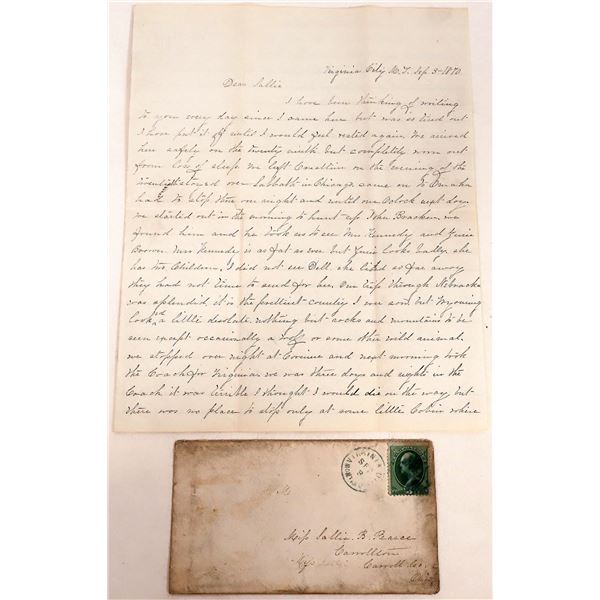 Virginia City M.T. Sep 3-1870
Dear Sallie
I have been thinking of writing
to you every day since I came here but was so tired out
I have put it off until I would feel rested again. We arived
here safely on the twenty ninth but completely worn out
from loss of sleep we left Carrollton on the evening of the
twentieth stoped over Sabbath in Chicago came on to Omaha
had to stop there one night and until one Oclock next day
we started out in the morning to hunt up John Bracken we
found him and he took us to see Mrs Kennedy and
Brown Mrs Kennedy is as fat as ever but looks badly she
has two Children. I did not see Dell she lived so far away
they had not time to send for her. Our trip through Nebraska
was splendid it is the prettiest country I ever saw but Wyoming
looked a little desolate nothing but rocks and mountains to be
seen except occasionally a wolf or some other wild animal
we stopped over night at Corinne and next morning took
the Coach for Virginia we was three days and nights in the
Coach it was terrible I thought I would die on the way but
there was no place to stop only at some little Cabin where
VIRGINIA
SEP
Miss Sallie B. Pearce
Carrollton
Carroll Co.
Ohio